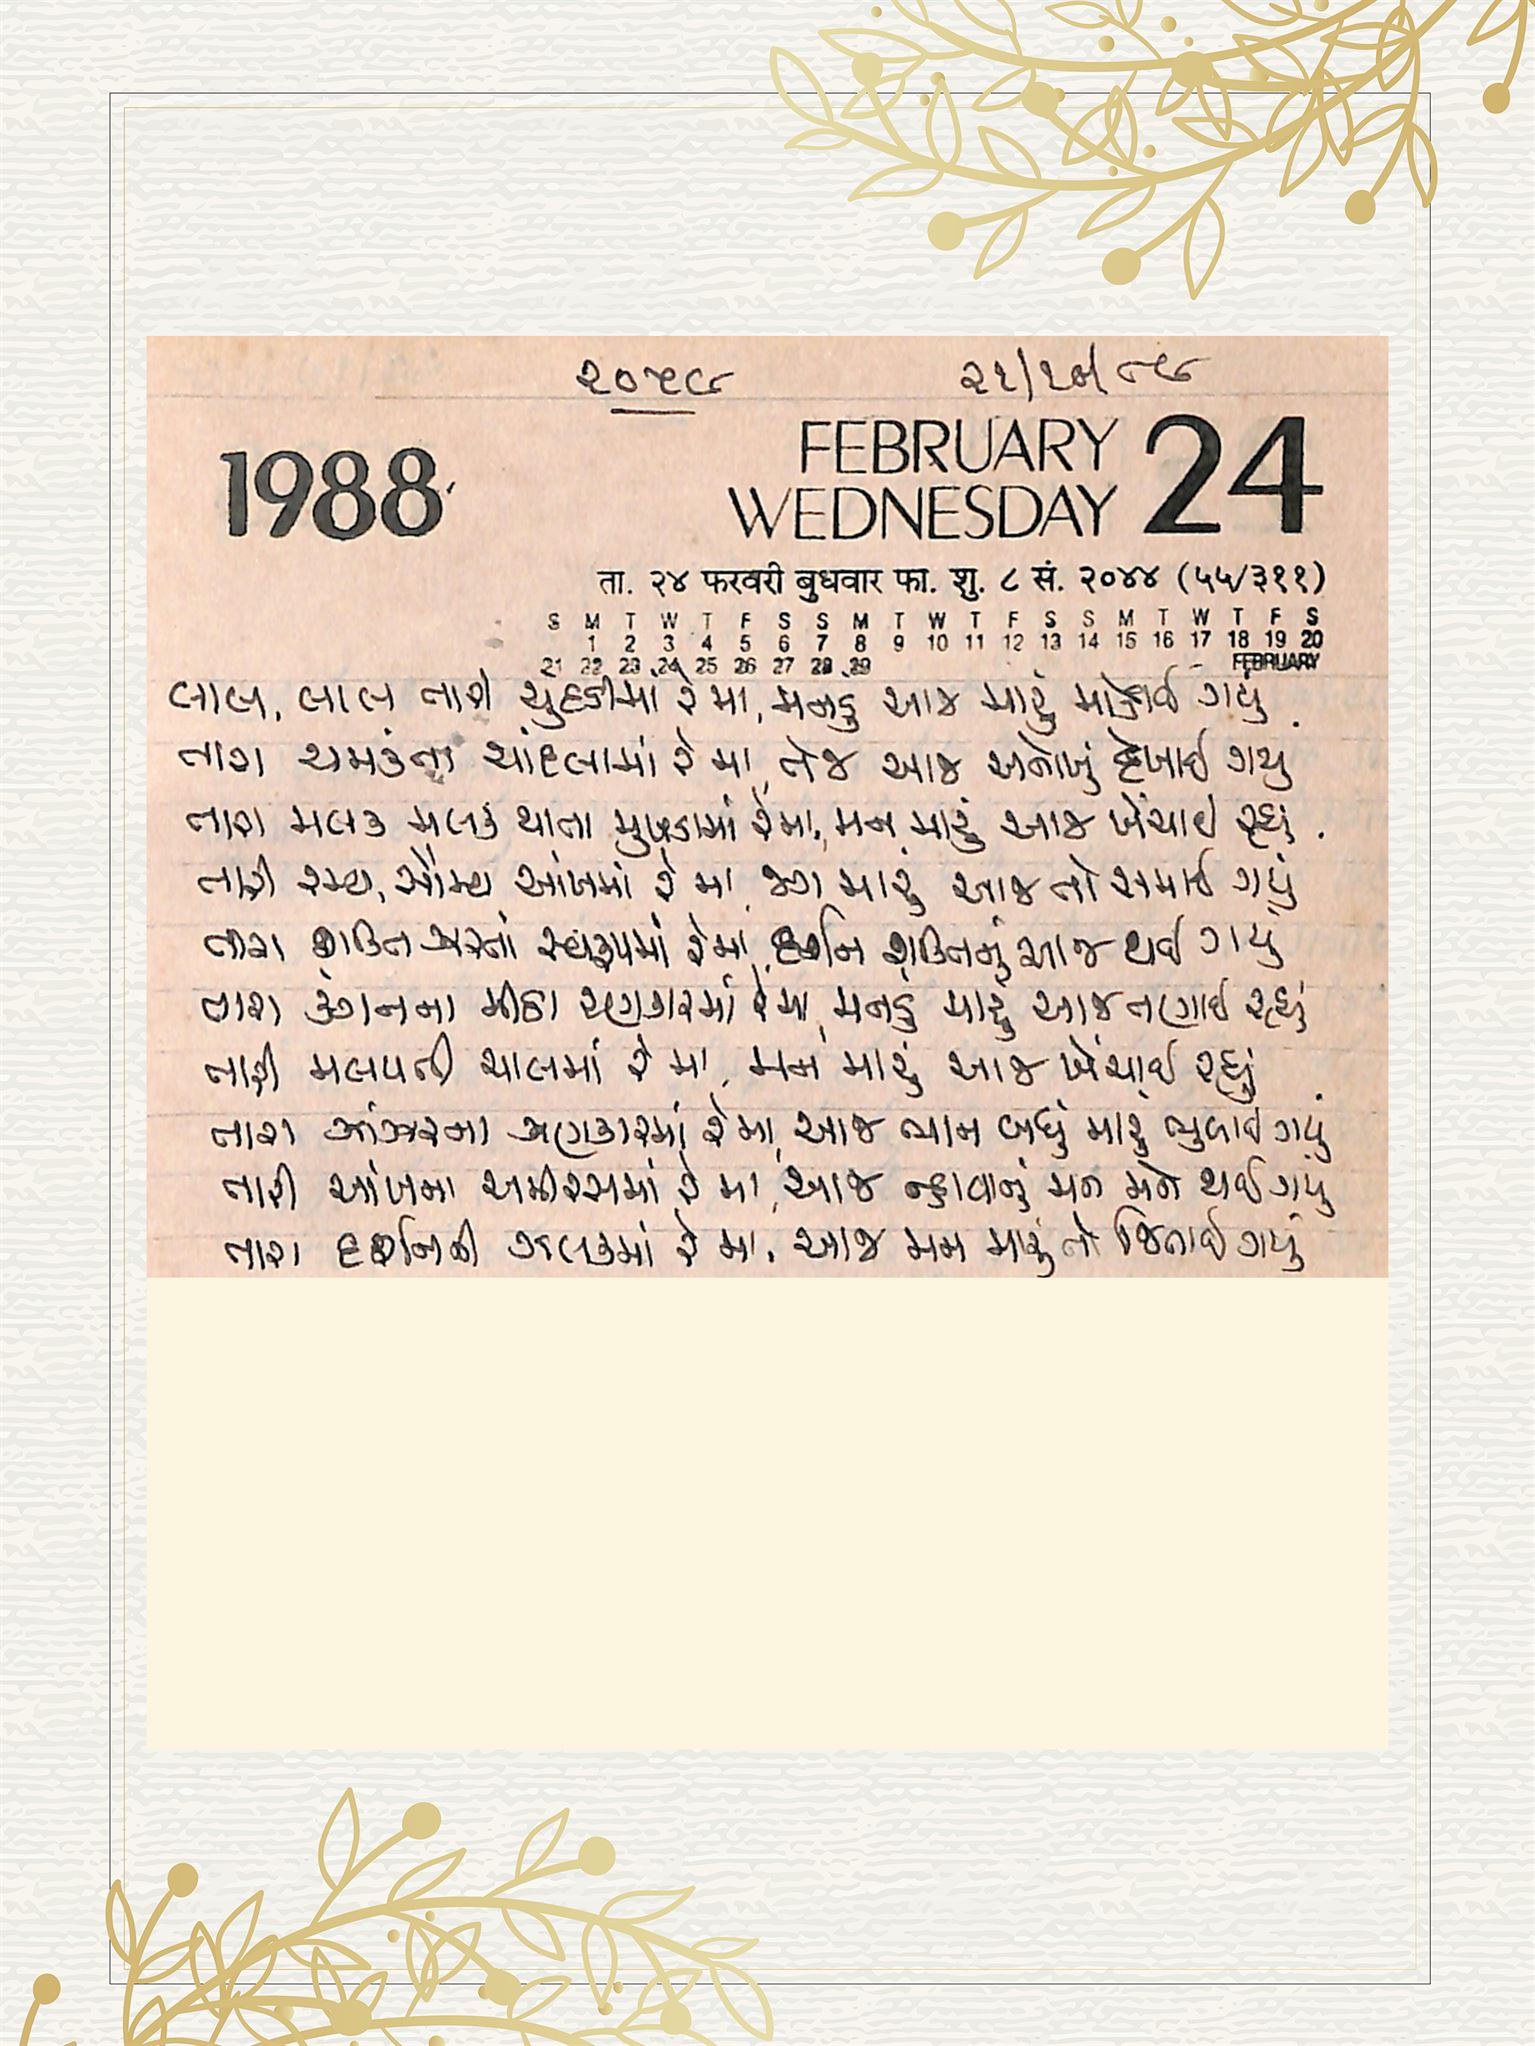 ૨૦૫૯ ૨૧/૧૦/૮૯
1988 FEBRUARY 24
WEDNESDAY
ता. २४ फरवरी बुधवार फा. शु. ८ सं. २०४४ (५५/३११)
S M T W T F S S M T W T F S S M T W T F S
1 2 3 4 5 6 7 8 9 10 11 12 13 14 15 16 17 18 19 20
21 22 23 24 25 26 27 28 29 FEBRUARY
લાલ, લાલ તારી ચુંદડીમાં રે મા, મનડું આજ મારું મોહાઈ ગયું.
તારા ચમકતા ચાંદલામાં રે મા, તેજ આજ અનોખું દેખાઈ ગયું
તારા મલક મલક થાતા મુખડામાં રે મા, મન મારું આજ ખેંચાઈ રહ્યું.
તારી રમ્ય, સૌમ્ય આંખમાં રે મા, જગ મારું આજ તો સમાઈ ગયું
તારા શક્તિ ઝરતાં સ્વરૂપમાં રે મા, દર્શન શક્તિનું આજ થઈ ગયું
તારા કંગનના મીઠા રણકારમાં રે મા, મનડું મારું આજ તણાઈ રહ્યું
તારી મલપતી ચાલમાં રે મા, મન મારું આજ ખેંચાઈ રહ્યું.
તારા ઝાંઝરના ઝણકારમાં રે મા, આજ ભાન બધું મારું ભુલાઈ ગયું
તારી આંખના અમીરસમાં રે મા, આજ ન્હાવાનું મન મને થઈ ગયું
તારા દર્શનની ઝલકમાં રે મા, આજ મન મારું તો જિતાઈ ગયું